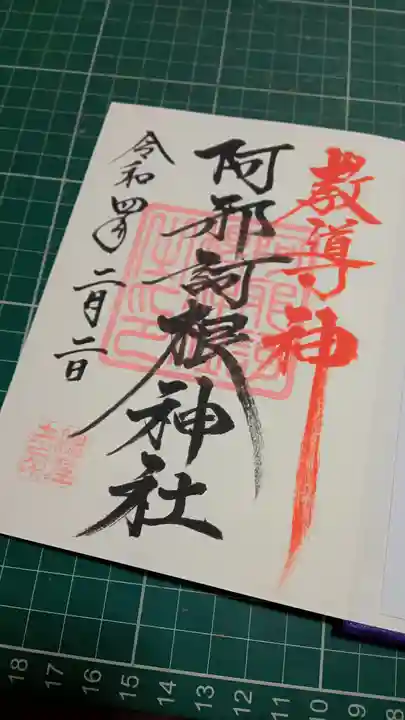 教導神
阿邪訶根神社
令和四年二月二日
18 17 16 15 14 13 12 11 10 9 8